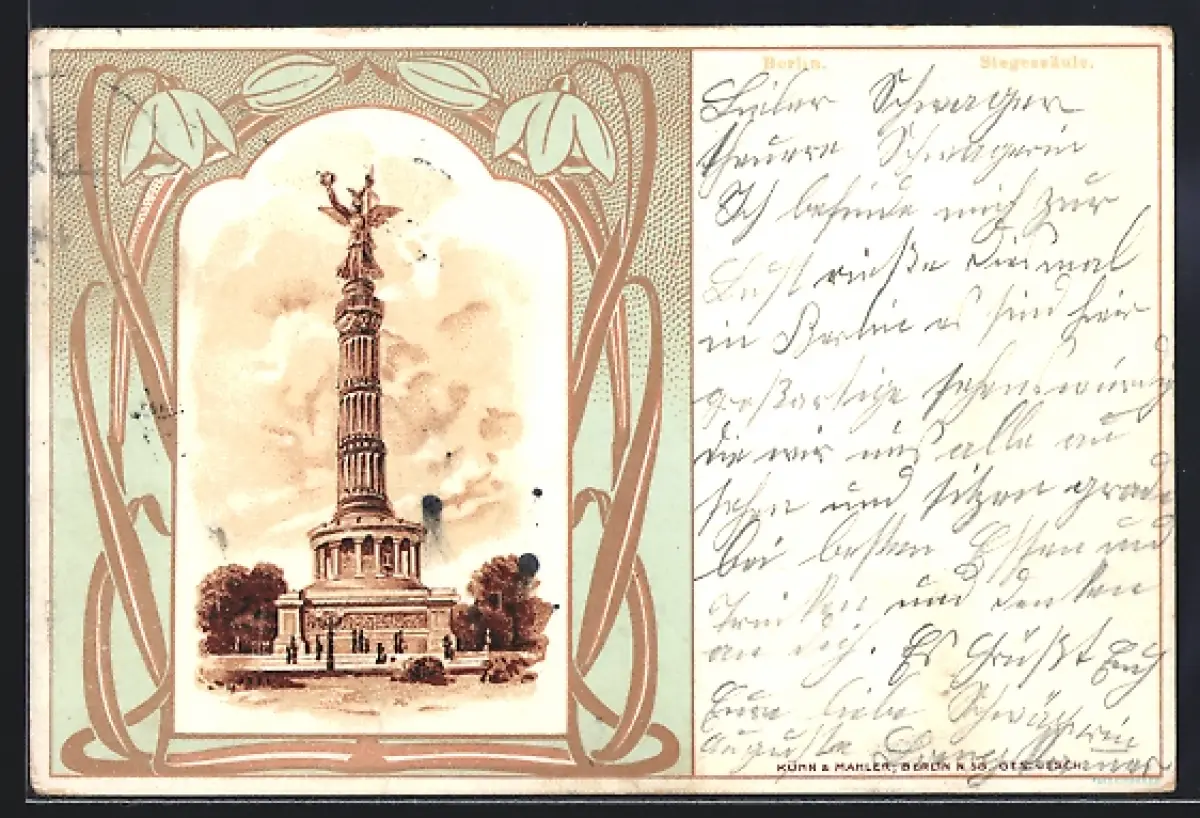 Berlin. Siegessäule.
Lieber Schwager
theuere Schwagerin
Ich befinde mich zur
Lust
in Berlin es sind hier
großartige sehenswürdig
die wir uns alle an
sehen und sitzen grade
bei besten Essen und
trinken und denken
an dich. Es Grüßt Euch
Eure liebe Schwägerin
Auguste
KÜHN & MAHLER, BERLIN N 58. GES. GESCH.